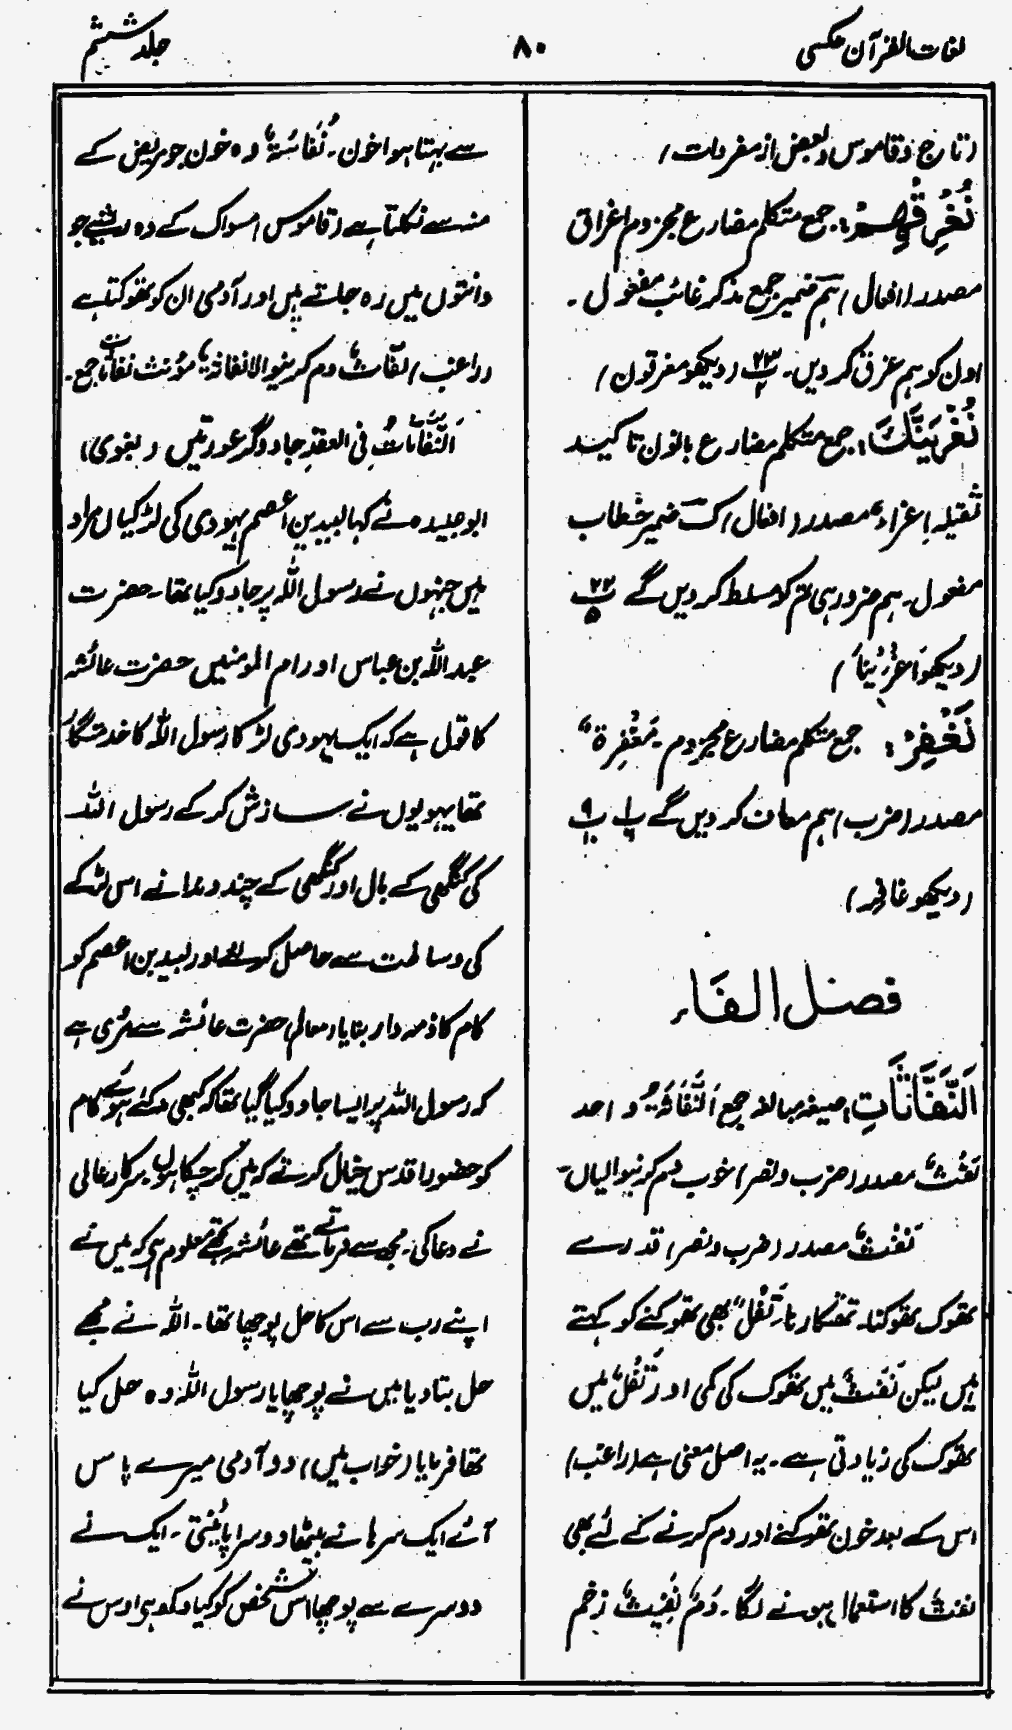 لغات القرآن عکسی
۸۰
جلد ششم
(تاج و قاموس و بعض از مفردات)
نُغْرِقْهُمْ: جمع متکلم مضارع مجزوم اغراق
مصدر (افعال) ہم ضمیر جمع مذکر غائب مفعول۔
اون کو ہم غرق کر دیں۔ ۲۳/۲ (دیکھو مغرقون)
نُغْرِیَنَّکَ: جمع متکلم مضارع بانون تاکید
ثقیلہ اِغراءٌ مصدر (افعال) کَ ضمیر خطاب
مفعول۔ ہم ضرور ہی تم کو مسلط کر دیں گے ۲۲/۵
(دیکھو اَغْرَیْنَا)
نَغْفِرْ: جمع متکلم مضارع مجزوم۔ مَغْفِرَۃٌ
مصدر (ضرب) ہم معاف کر دیں گے
(دیکھو غافر)
فصل الفاء
اَلنَّفّٰثٰتِ صیغہ مبالغہ جمع اَلنَّفَّاثَۃُ واحد
نَفْثٌ مصدر (ضرب و نصر) خوب دم کرنیوالیاں۔
نَفْثٌ مصدر (ضرب و نصر) قدرے
تھوک تھوکنا۔ تھتکارنا۔ تَفْلٌ بھی تھوکنے کو کہتے
ہیں لیکن نَفْثٌ میں تھوک کی کمی اور تَفْلٌ میں
تھوک کی زیادتی ہے۔ یہ اصل معنی ہے (راغب)
اس کے بعد خون تھوکنے اور دم کرنے کے لئے بھی
نفثٌ کا استعمال ہونے لگا۔ دَمٌ نَفِیثٌ زخم
سے بہتا ہوا خون۔ نُفَاثَۃٌ وہ خون جو مریض کے
منہ سے نکلتا ہے (قاموس) مسواک کے وہ ریشے جو
دانتوں میں رہ جاتے ہیں اور آدمی ان کو تھوکتا ہے
(راغب) نفّاثٌ دم کرنیوالا نفاثۃٌ مؤنث نفاثات جمع۔
اَلنَّفّٰثٰتُ فِی العقدِ جادوگر عورتیں (بغوی)
ابو عبیدہ نے کہا لبید بن اعصم یہودی کی لڑکیاں مراد
ہیں جنہوں نے رسول اللہ پر جادو کیا تھا۔ حضرت
عبد اللہ بن عباس اور ام المومنین حضرت عائشہ
کا قول ہے کہ ایک یہودی لڑکا رسول اللہ کا خدمتگار
تھا یہودیوں نے سازش کر کے رسول اللہ
کی کنگھی کے بال اور کنگھی کے چند دندانے اس لڑکے
کی وساطت سے حاصل کر لئے اور لبید بن اعصم کو
کام کا ذمہ دار بنایا (معالم) حضرت عائشہ سے مروی ہے
کہ رسول اللہ پر ایسا جادو کیا گیا تھا کہ کبھی نہ کئے ہوئے کام
کو حضور اقدس خیال کرتے کہ میں کر چکا ہوں سرکار عالی
نے دعا کی۔ مجھ سے فرماتے تھے عائشہ تجھے معلوم ہی کہ میں نے
اپنے رب سے اس کا حل پوچھا تھا۔ اللہ نے مجھے
حل بتا دیا میں نے پوچھا یا رسول اللہ وہ حل کیا
تھا فرمایا (خواب میں) دو آدمی میرے پاس
آئے ایک سرہانے بیٹھا دوسرا پائنتی۔ ایک نے
دوسرے سے پوچھا اس شخص کو کیا دکھ ہی اوس نے